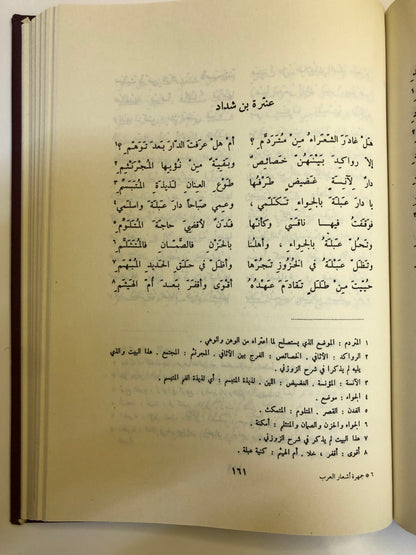 عنترة بن شداد
هَلْ غَادَرَ الشّعَرَاءُ مِنْ مُتَرَدَّمِ ؟ أَمْ هَلْ عَرَفْتَ الدَّارَ بَعدَ تَوَهّمِ ؟١
إلاّ رَواكِدَ بَيْنَهُنّ خَصائِصٌ وبَقِيّةٌ مِنْ نُؤْيِها المُجْرَنْثِمِ٢
دارٌ لآنِسَةٍ غَضِيضٍ طَرْفُها طَوْعِ العِنانِ لَذيذَةِ المُتَبَسَّمِ٣
يا دارَ عَبْلَةَ بالجِواءِ تَكَلّمي ، وعِمي صَباحاً دارَ عَبْلَةَ واسلَمي٤
فوَقَفْتُ فيها ناقَتي وكأنّها فَدَنٌ لأقْضِيَ حاجَةَ المُتَلَوِّمِ٥
وتَحُلّ عَبْلَةُ بالجِواءِ ، وأهْلُنا بالحَزْنِ فالصَّمّانِ فالمُتَثَلَّمِ٦
وتَظَلّ عَبْلَةُ في الخُزُوزِ تَجُرّها وأظَلّ في حَلَقِ الحَديدِ المُبْهَمِ٧
حُيّيتَ مِنْ طَلَلٍ تَقادَمَ عَهْدُهُ أقْوَى وأقفَرَ بَعدَ أُمّ الهَيْثَمِ٨
١ المتردم : الموضع الذي يستصلح لما اعتراه من الوهن والوهي .
٢ الرواكد : الأثافي . الخصائص : الفرج بين الأثافي . المجرنثم : المجتمع . هذا البيت والذي
يليه لم يذكرا في شرح الزوزني .
٣ الآنسة : المؤنسة . الغضيض : اللين . لذيذة المتبسم : أي لذيذة الفم المتبسم .
٤ الجواء : موضع .
٥ الفدن : القصر . المتلوم : المتمكث .
٦ الجواء والحزن والصمان والمتثلم : أمكنة .
٧ هذا البيت لم يذكر في شرح الزوزني .
٨ أقوى : أقفر ، خلا . أم الهيثم : كنية عبلة .
١٦١
٥٦ جمهرة أشعار العرب